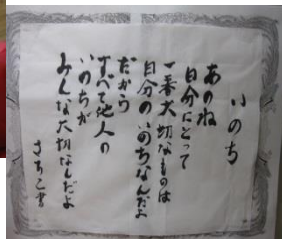 いのち
あのね
自分にとって
一番大切なものは
自分のいのちなんだよ
だから
すべて他人の
いのちが
みんな大切なんだよ
さちこ書